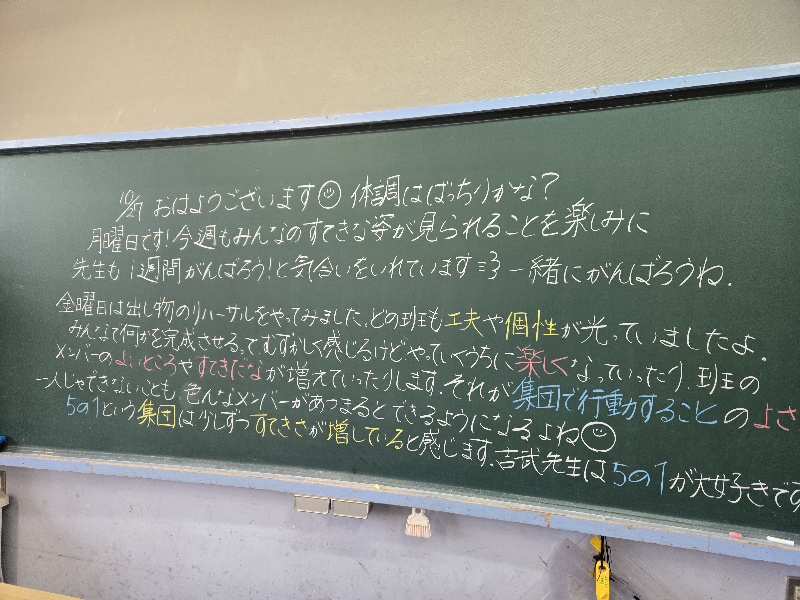 10/27 おはようございます☺ 体調はばっちりかな?
月曜日です!今週もみんなのすてきな姿が見られることを楽しみに
先生も1週間がんばろう!と気合いをいれています 一緒にがんばろうね.
金曜日は出し物のリハーサルをやってみました.どの班も工夫や個性が光っていましたよ.
みんなで何かを完成させるってむずかしく感じるけどやっていくうちに楽しくなっていったり、班の
メンバーのよいところやすてきだなが増えていったりします.それが集団で行動することのよさ
一人じゃできないことも、色んなメンバーがあつまるとできるようになるよね☺
5の1という集団は少しずつすてきさが増していると感じます.吉武先生は5の1が大好きです